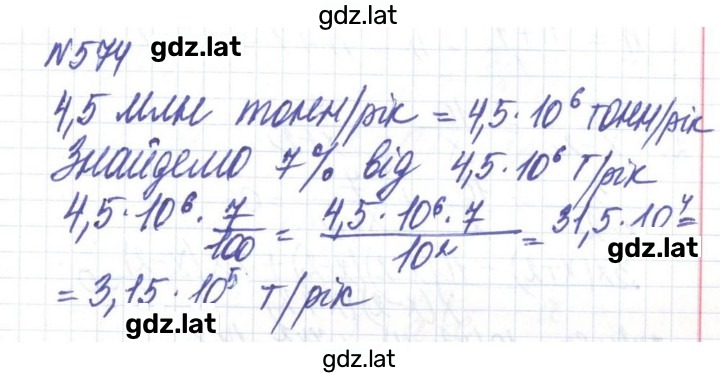 gdz.lat
№574 gdz.lat
4,5 млн тонн/рік = 4,5·10⁶ тонн/рік
Знайдемо 7% від 4,5·10⁶ т/рік
4,5·10⁶·7/100 = 4,5·10⁶·7/10² = 31,5·10⁴ =
gdz.lat
= 3,15·10⁵ т/рік
gdz.lat
gdz.lat